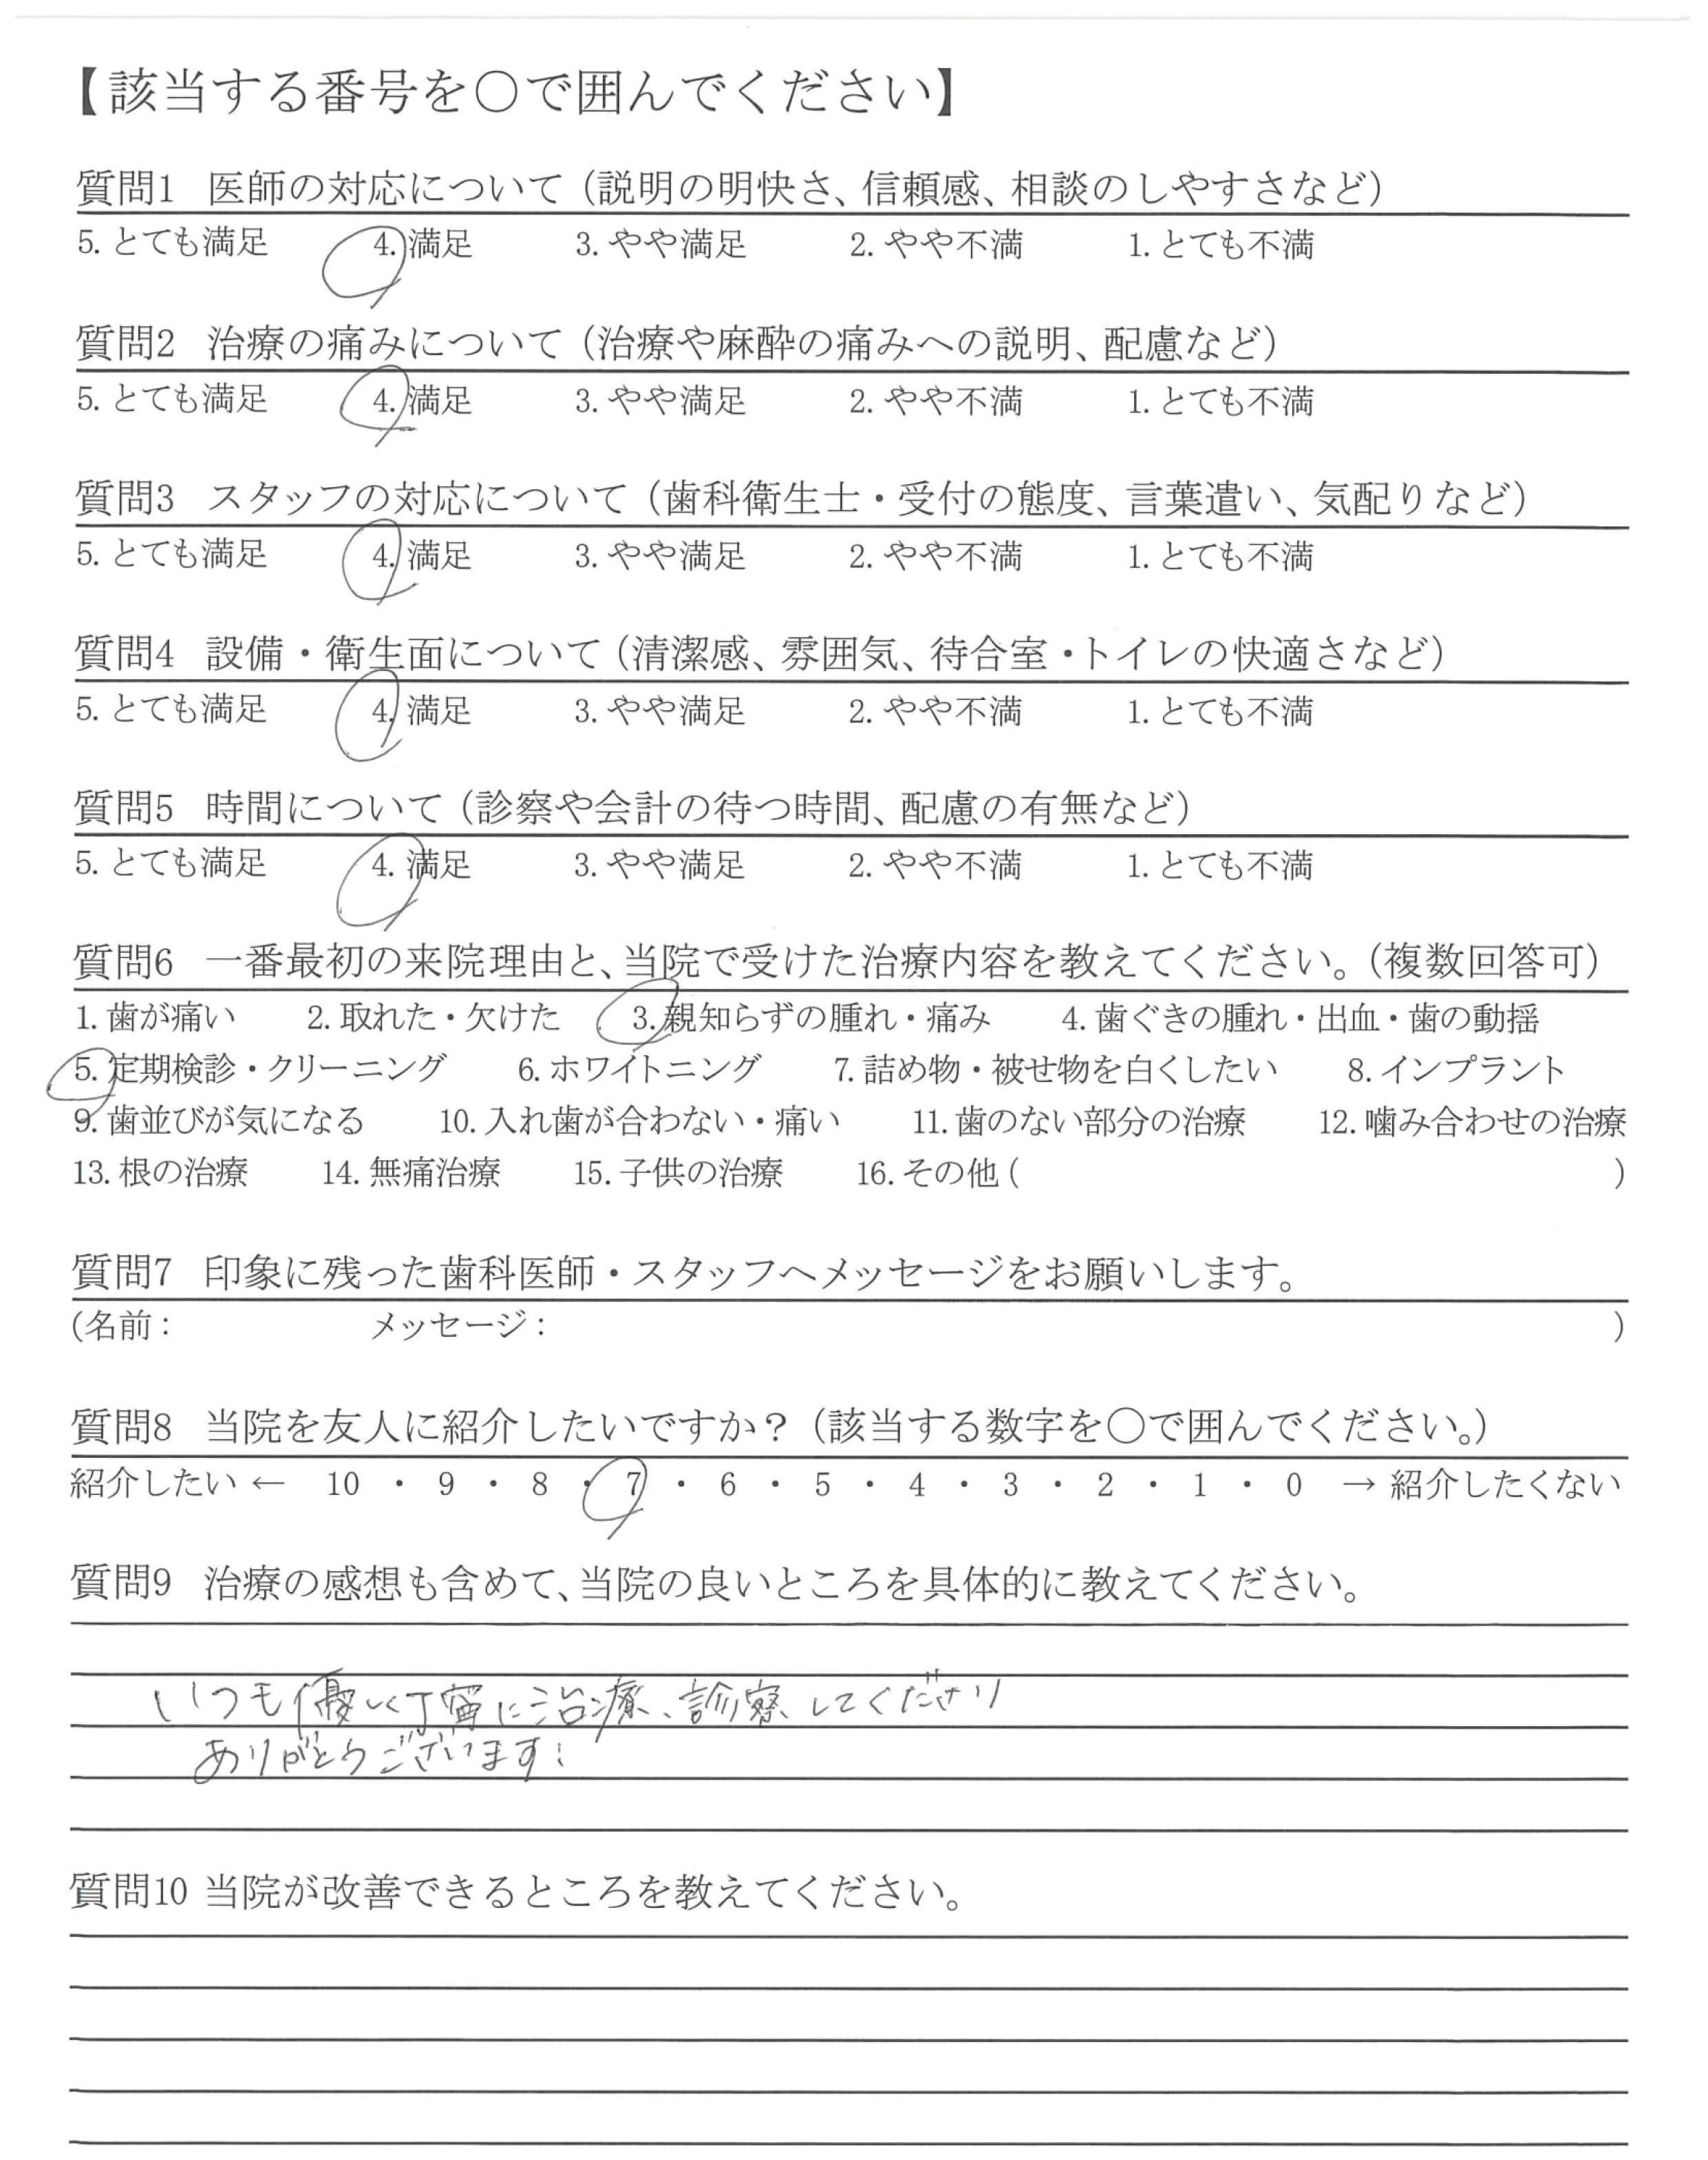 【該当する番号を○で囲んでください】
質問1 医師の対応について（説明の明快さ、信頼感、相談のしやすさなど）
5. とても満足 4. 満足 3. やや満足 2. やや不満 1. とても不満
質問2 治療の痛みについて（治療や麻酔の痛みへの説明、配慮など）
5. とても満足 4. 満足 3. やや満足 2. やや不満 1. とても不満
質問3 スタッフの対応について（歯科衛生士・受付の態度、言葉遣い、気配りなど）
5. とても満足 4. 満足 3. やや満足 2. やや不満 1. とても不満
質問4 設備・衛生面について（清潔感、雰囲気、待合室・トイレの快適さなど）
5. とても満足 4. 満足 3. やや満足 2. やや不満 1. とても不満
質問5 時間について（診察や会計の待つ時間、配慮の有無など）
5. とても満足 4. 満足 3. やや満足 2. やや不満 1. とても不満
質問6 一番最初の来院理由と、当院で受けた治療内容を教えてください。（複数回答可）
1. 歯が痛い 2. 取れた・欠けた 3. 親知らずの腫れ・痛み 4. 歯ぐきの腫れ・出血・歯の動揺
5. 定期検診・クリーニング 6. ホワイトニング 7. 詰め物・被せ物を白くしたい 8. インプラント
9. 歯並びが気になる 10. 入れ歯が合わない・痛い 11. 歯のない部分の治療 12. 噛み合わせの治療
13. 根の治療 14. 無痛治療 15. 子供の治療 16. その他（ ）
質問7 印象に残った歯科医師・スタッフへメッセージをお願いします。
（名前： メッセージ： ）
質問8 当院を友人に紹介したいですか？（該当する数字を○で囲んでください。）
紹介したい ← 10 ・ 9 ・ 8 ・ 7 ・ 6 ・ 5 ・ 4 ・ 3 ・ 2 ・ 1 ・ 0 → 紹介したくない
質問9 治療の感想も含めて、当院の良いところを具体的に教えてください。
いつも優しく丁寧に治療、診察してくださり
ありがとうございます!
質問10 当院が改善できるところを教えてください。